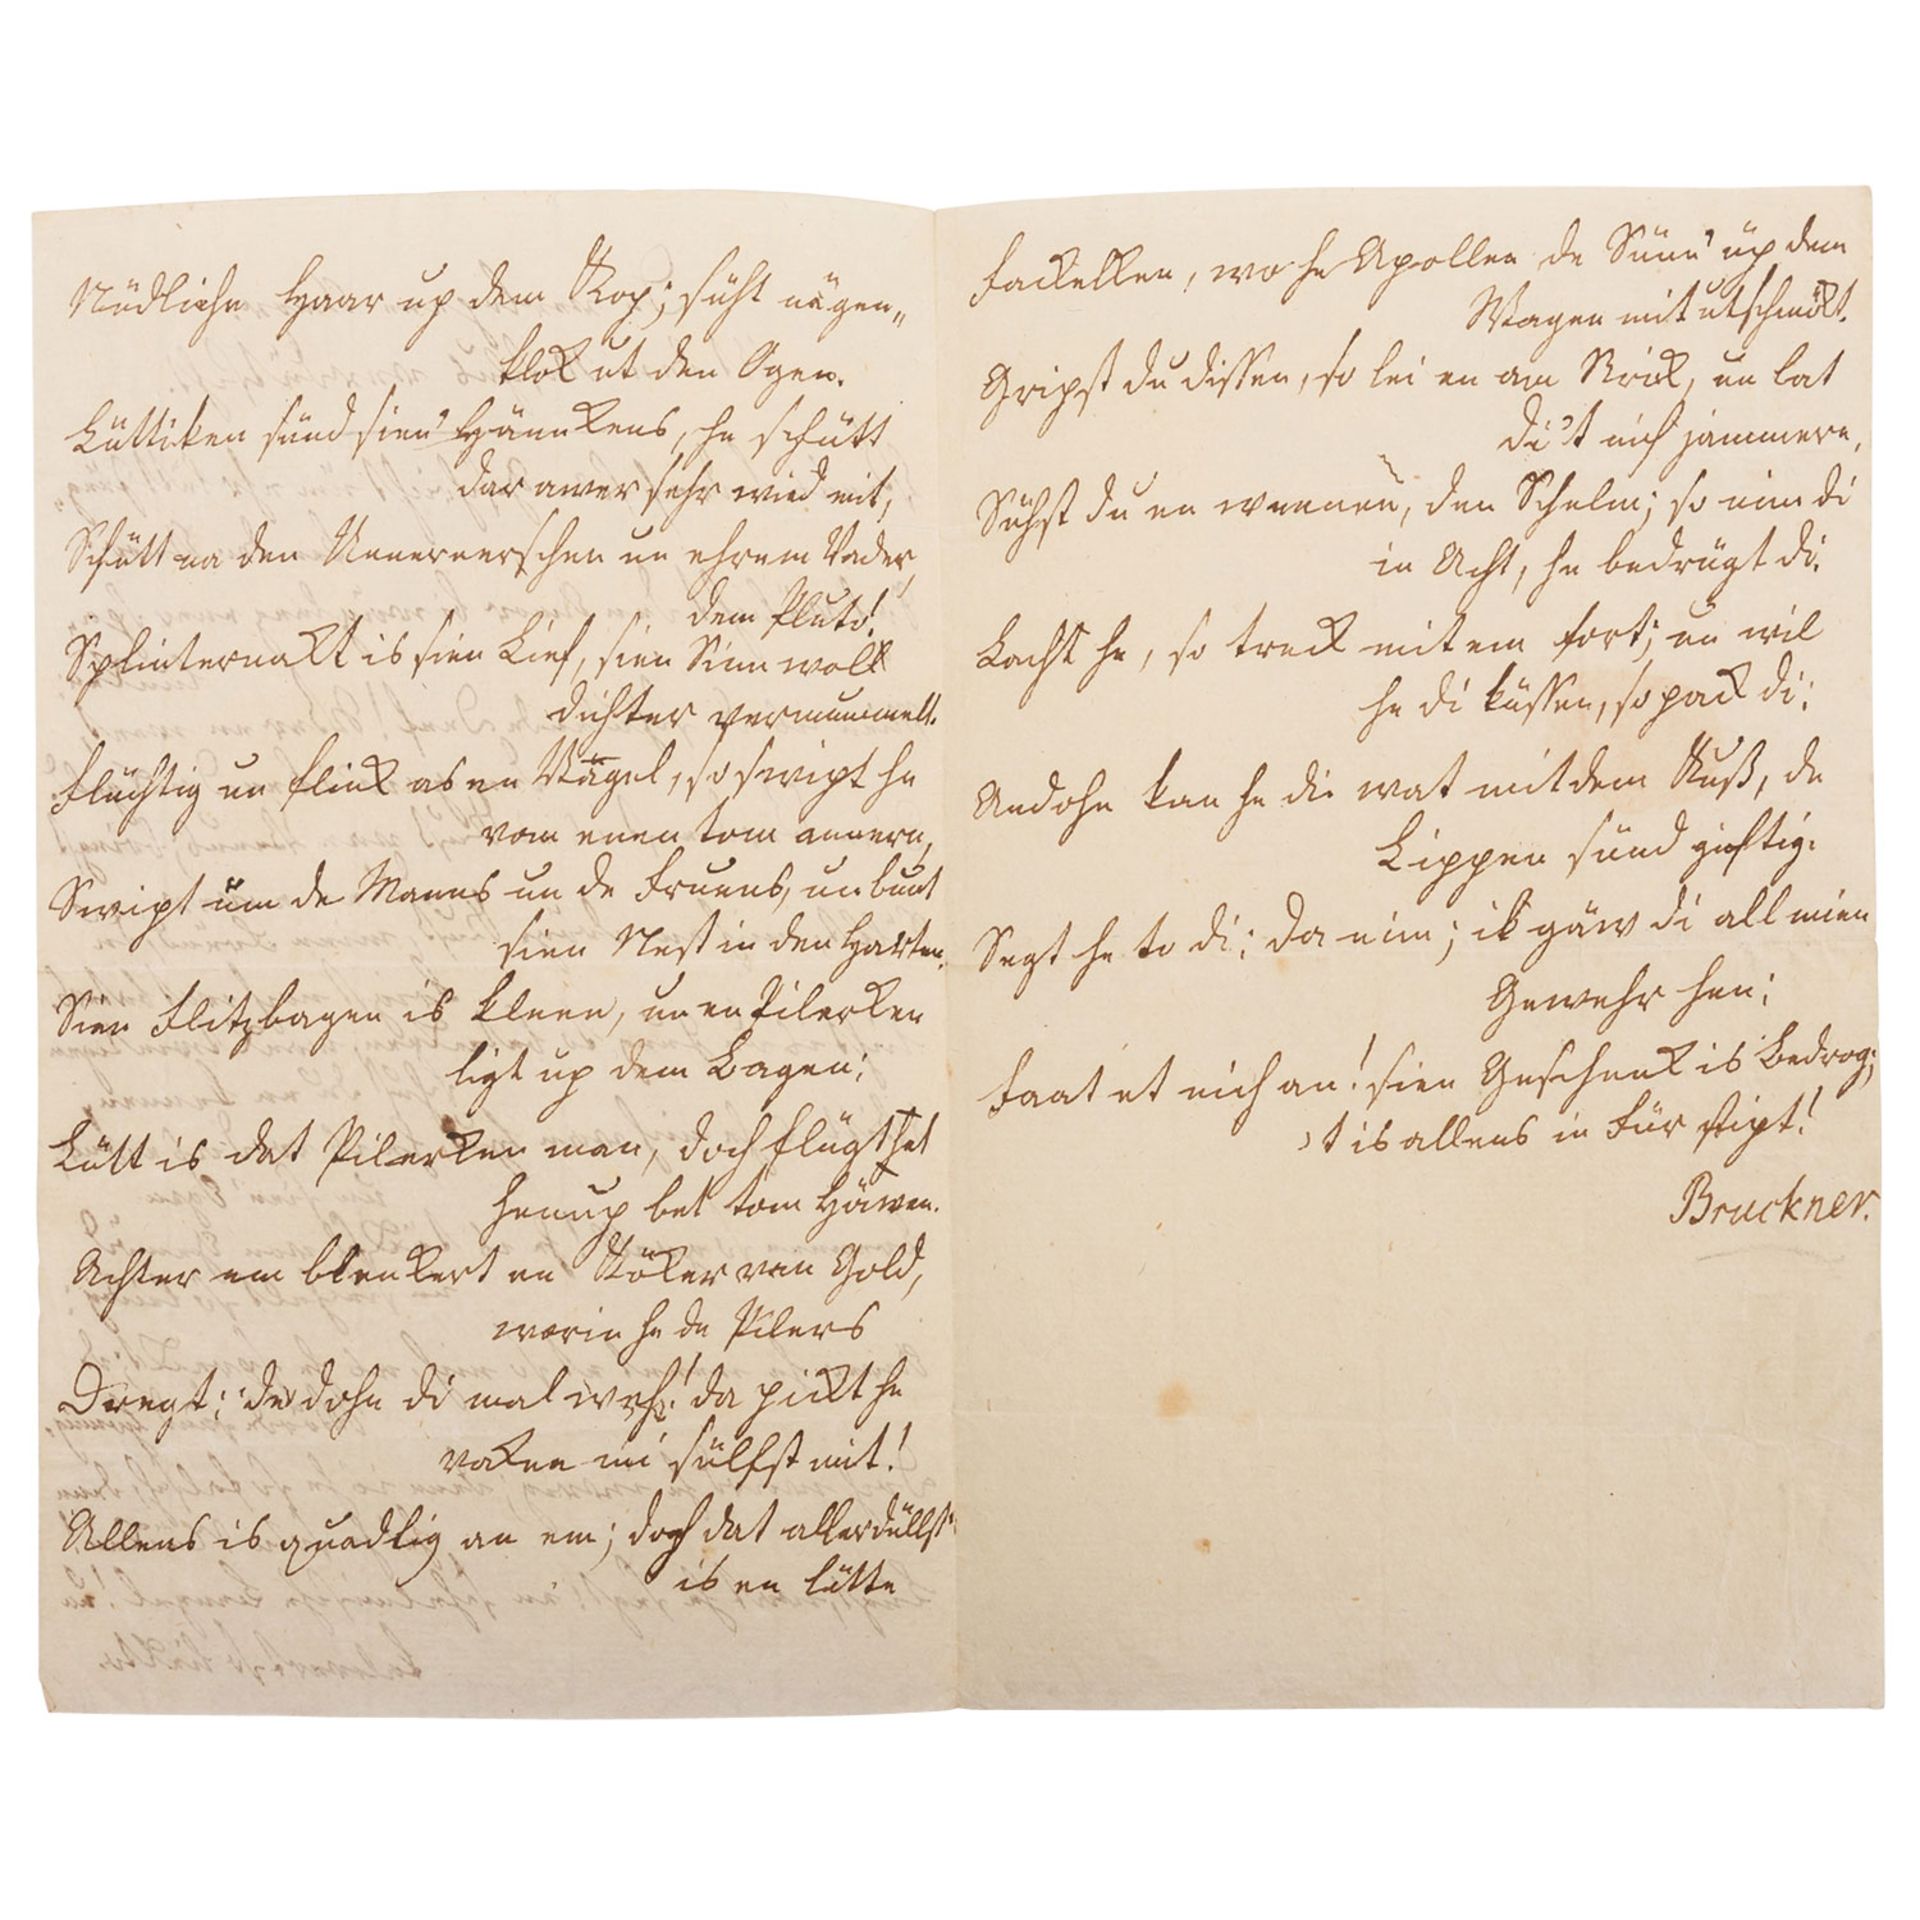 Nüdliche Haar up dem Kop; süht nägen„
klok ut den Ogen.
Lüttiken sünd sien' Hännkens, he schütt
dar awer sehr wied mit,
Schütt na den Unnererschen un ehrem Vader,
dem Pluto!
Splinternakt is sien Lief, sien Sinn woll
dichter vermummelt.
Flüchtig un flink as en Vägel, so swipt he
vom enen tom annern,
Swipt üm de Manns un de Fruens, un buut
sien Nest in den Harten.
Sien Flitzbagen is kleen, un en Pilerken
ligt up dem Bagen;
Lütt is dat Pilerken man, doch flügt het
henup bet tom Häwen.
Achter em blenkert en Köker van Gold,
worin he de Pilers
Dregt; de dohn di mal weh! da pickt he
vaken mi sülfst mit!
Allens is quadlig an em; doch dat allerdüllst'
is en lütte
Fackelken, wo he Apollen de Sünn' up dem
Wagen mit utschmökt.
Gripst du dissen, so lei en am Strick, un lat
di't nich jammern,
Sühst du en weenen, den Schelm; so nim di
in Acht, he bedrügt di.
Lacht he, so treck mit em fort; un wil
he di küssen, so pack di;
Andohn kan he di wat mit dem Kuß, de
Lippen sünd giftig.
Segt he to di: da nim; ik gäw di all mien
Gewehr hen;
Faat et nich an! sien Geschenk is Bedrog;
't is allens in Für stipt!
Bruckner.